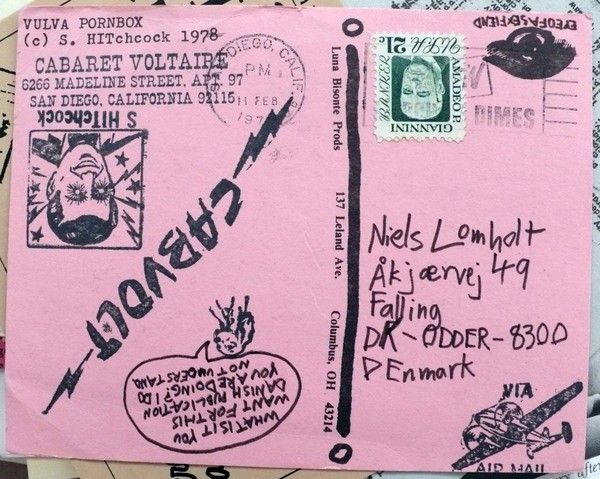 VULVA PORNBOX
(c) S. HITchcock 1978
CABARET VOLTAIRE
6266 MADELINE STREET, APT 97
SAN DIEGO, CALIFORNIA 92115
S HITchcock
DIEGO, CALIF.
PM
11 FEB
197
CABVOLT
WHAT IS IT YOU
WANT FOR THIS
DANISH PUBLICATION
YOU ARE DOING? I DO
NOT UNDERSTAND
Luna Bisonte Prods 137 Leland Ave. Columbus, OH 43214
AMADEO P. GIANNINI
BANKER
USA 21c
DIMES
EYEOFASBYFIEND
Niels Lomholt
Åkjærvej 49
Falling
DK-ODDER-8300
DEnmark
VIA
AIR MAIL
after